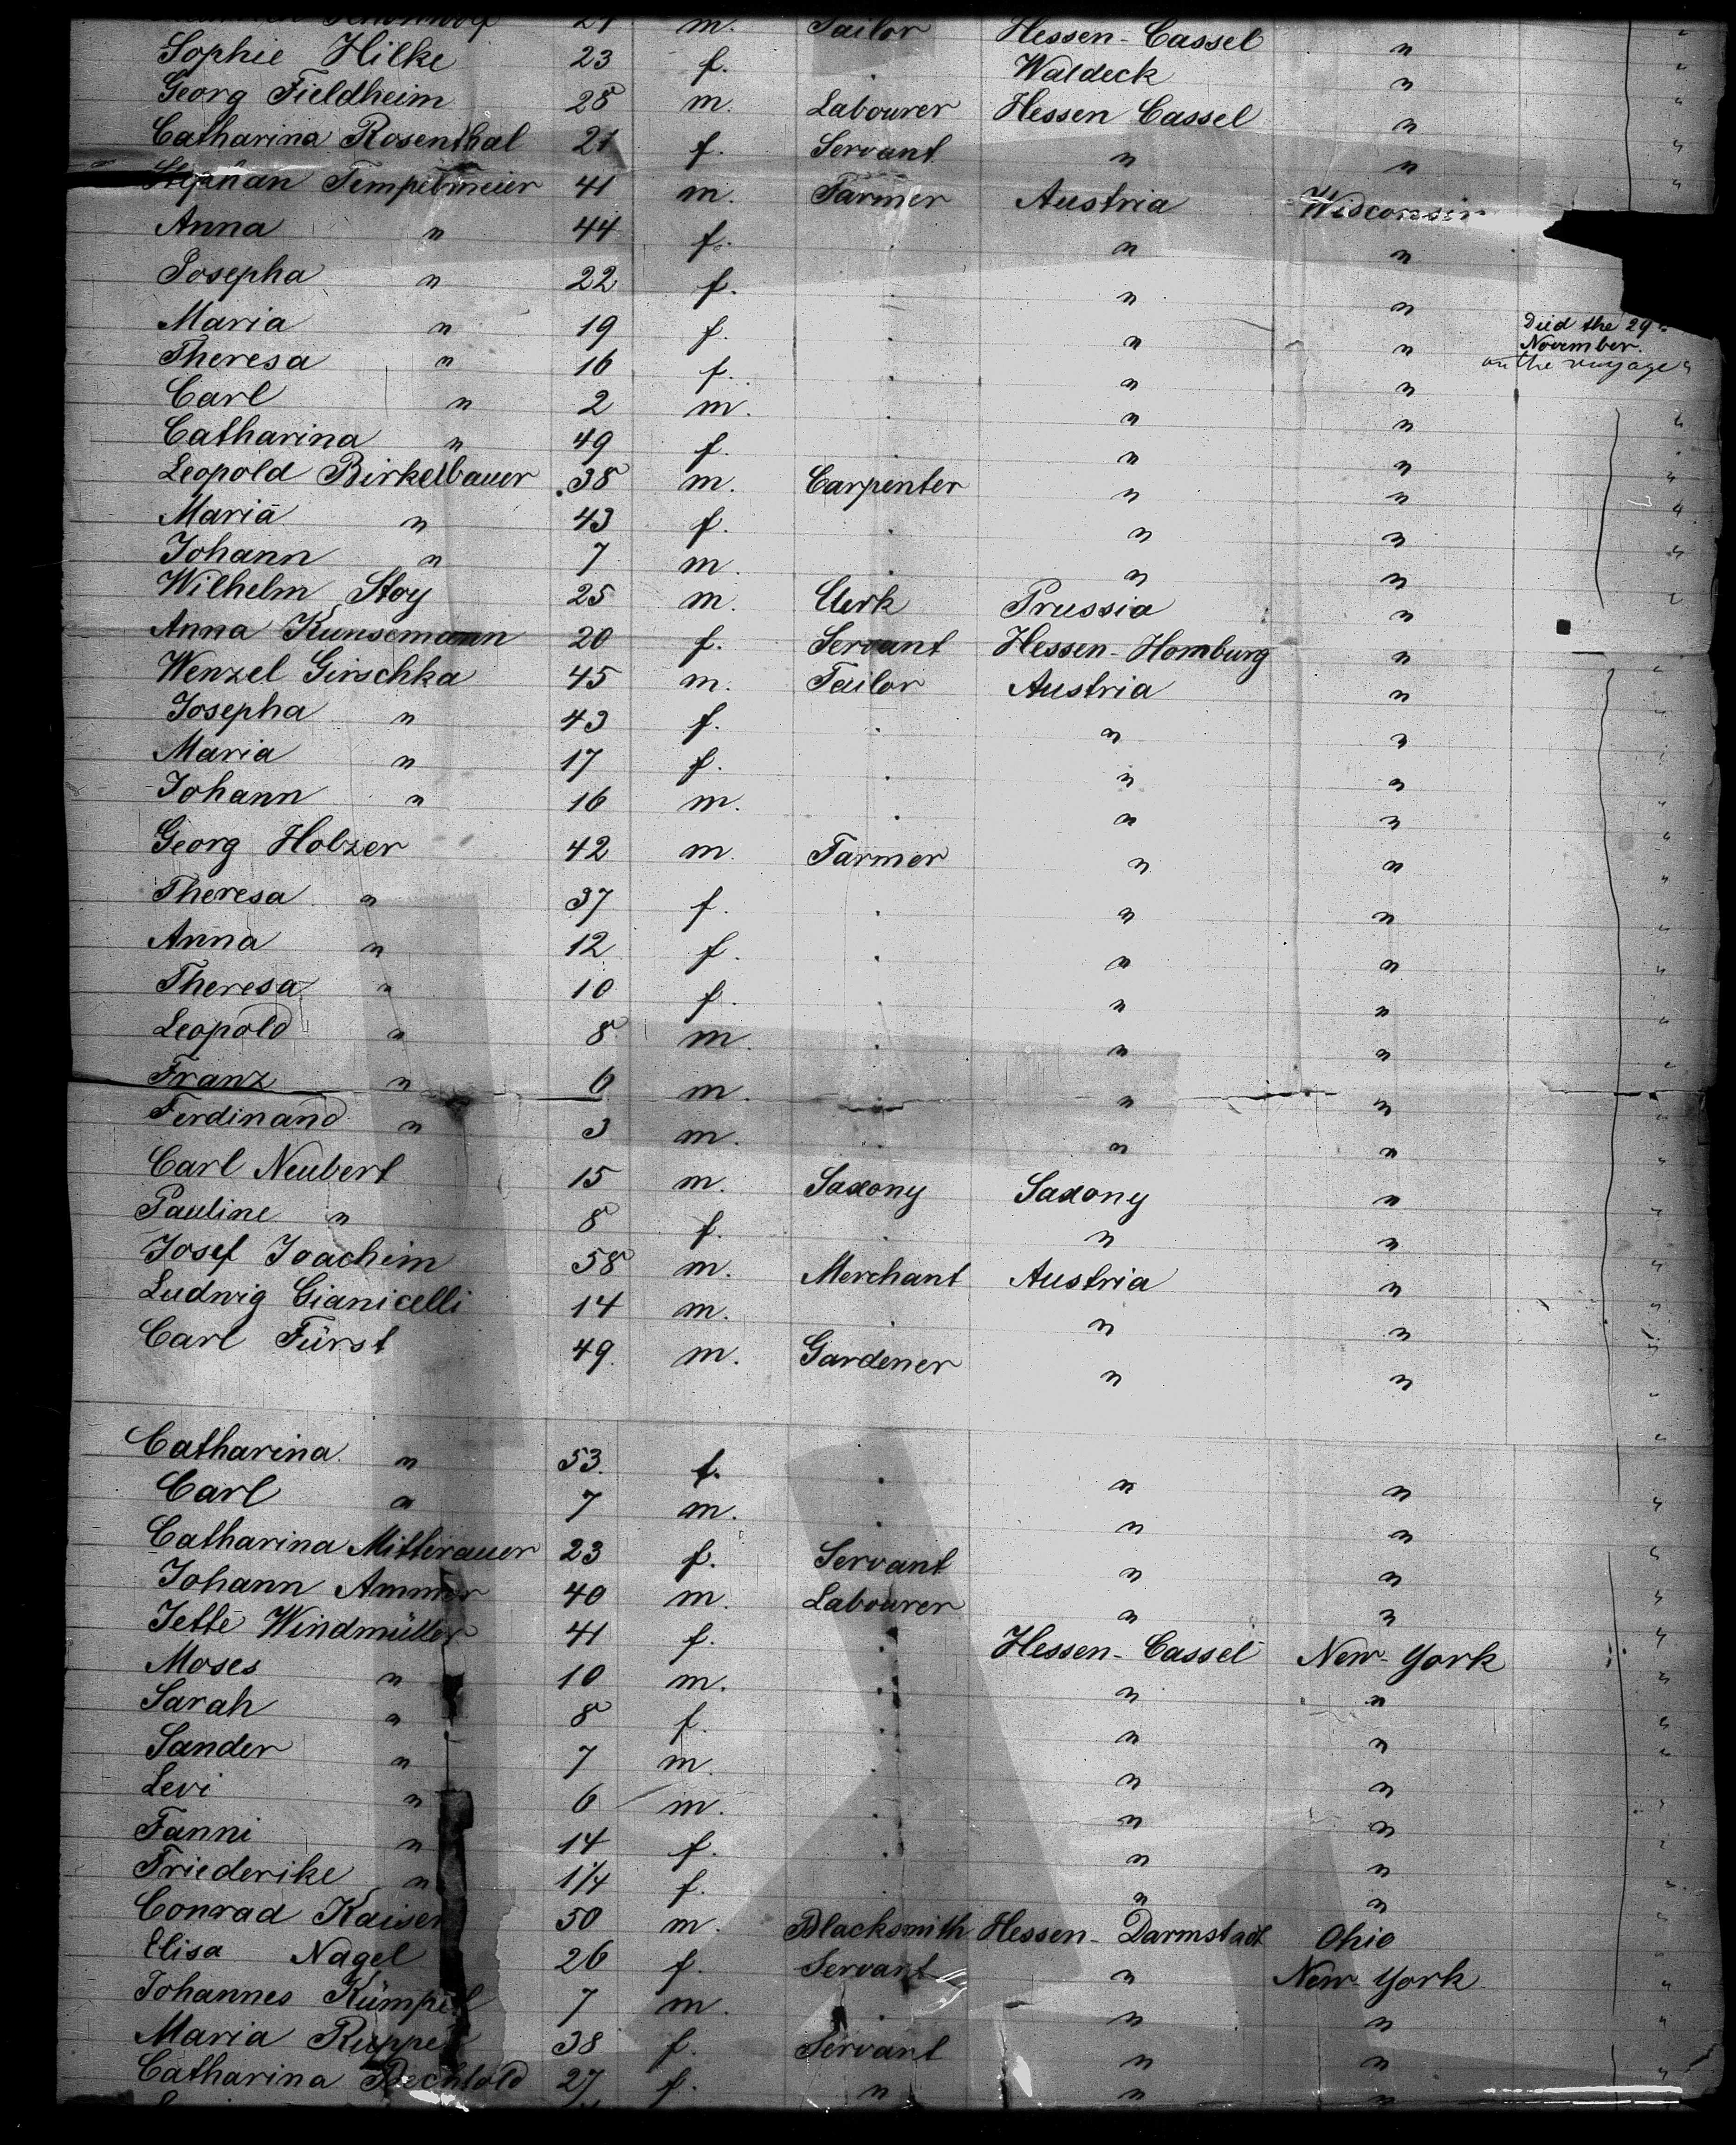 21 m. Tailor Hessen-Cassel "
Sophie Hilke 23 f. Waldeck "
Georg Fieldheim 28 m. Labourer Hessen Cassel "
Catharina Rosenthal 21 f. Servant " "
Stephan Tempelmeier 41 m. Farmer Austria Wisconsin
Anna " 44 f. " "
Josepha " 22 f. " "
Maria " 19 f. " " Died the 29
Theresa " 16 f. " " November
Carl " 2 m. " " on the voyage
Catharina " 49 f. " "
Leopold Birkelbauer 38 m. Carpenter " "
Maria " 43 f. " "
Johann " 7 m. " "
Wilhelm Stoy 25 m. Clerk Prussia "
Anna Kunsemann 20 f. Servant Hessen-Homburg "
Wenzel Girschka 45 m. Tailor Austria "
Josepha " 43 f. " "
Maria " 17 f. " "
Johann " 16 m. " "
Georg Holzer 42 m. Farmer " "
Theresa " 37 f. " "
Anna " 12 f. " "
Theresa " 10 f. " "
Leopold " 8 m. " "
Franz " 6 m. " "
Ferdinand " 3 m. " "
Carl Neubert 15 m. Saxony Saxony "
Pauline " 8 f. " "
Josef Joachim 58 m. Merchant Austria "
Ludwig Gianicelli 14 m. " "
Carl Fürst 49 m. Gardener " "
Catharina " 53 f. " "
Carl " 7 m. " "
Catharina Mitterauer 23 f. Servant " "
Johann Ammer 40 m. Labourer " "
Jette Windmüller 41 f. Hessen-Cassel New-York
Moses " 10 m. " "
Sarah " 8 f. " "
Sander " 7 m. " "
Levi " 6 m. " "
Fanni " 14 f. " "
Friederike " 1/4 f. " "
Conrad Kaiser 50 m. Blacksmith Hessen-Darmstadt Ohio
Elisa Nagel 26 f. Servant " New-York
Johannes Kümpel 7 m. " "
Maria Ruppel 38 f. Servant " "
Catharina Bechtold 27 f. " " "